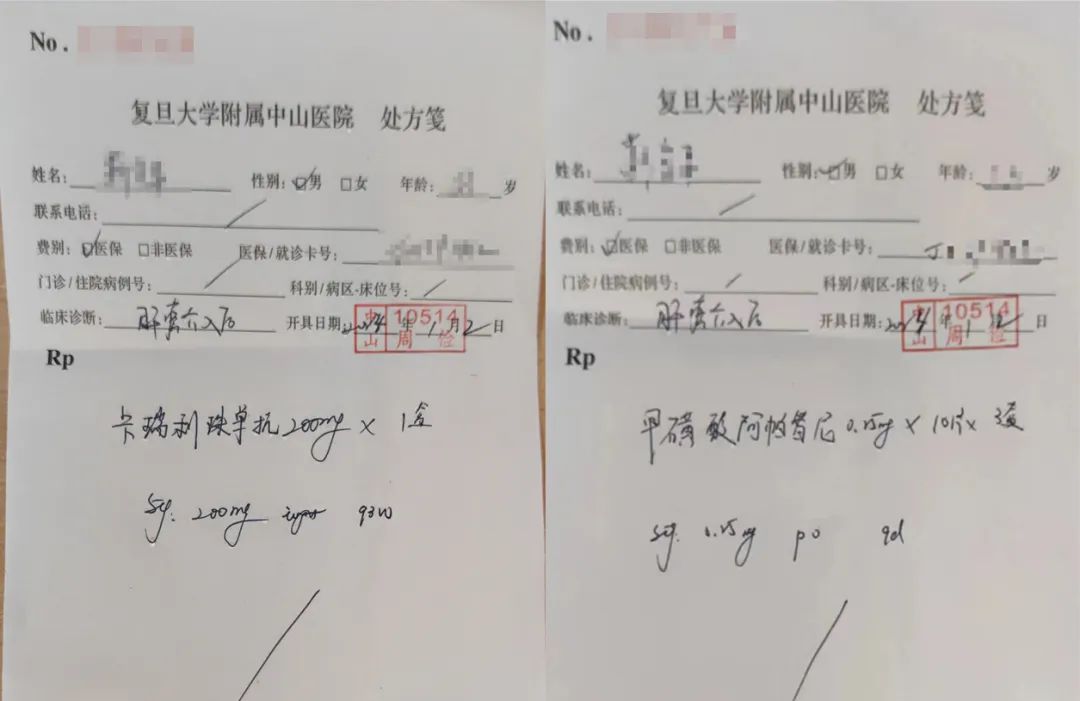 No.
复旦大学附属中山医院 处方笺
姓名: 性别: 男 女 年龄: 岁
联系电话:
费别: 医保 非医保 医保/就诊卡号:
门诊/住院病例号: 科别/病区-床位号:
临床诊断: 肝癌介入后 开具日期: 2024年1月2日
中山 10514 周俭
Rp
卡瑞利珠单抗 200mg × 1盒
Sig. 200mg q3w
No.
复旦大学附属中山医院 处方笺
姓名: 性别: 男 女 年龄: 岁
联系电话:
费别: 医保 非医保 医保/就诊卡号:
门诊/住院病例号: 科别/病区-床位号:
临床诊断: 肝癌介入后 开具日期: 2024年1月2日
中山 10514 周俭
Rp
甲磺酸阿帕替尼 0.25mg × 10片×
Sig. 0.25mg po qd